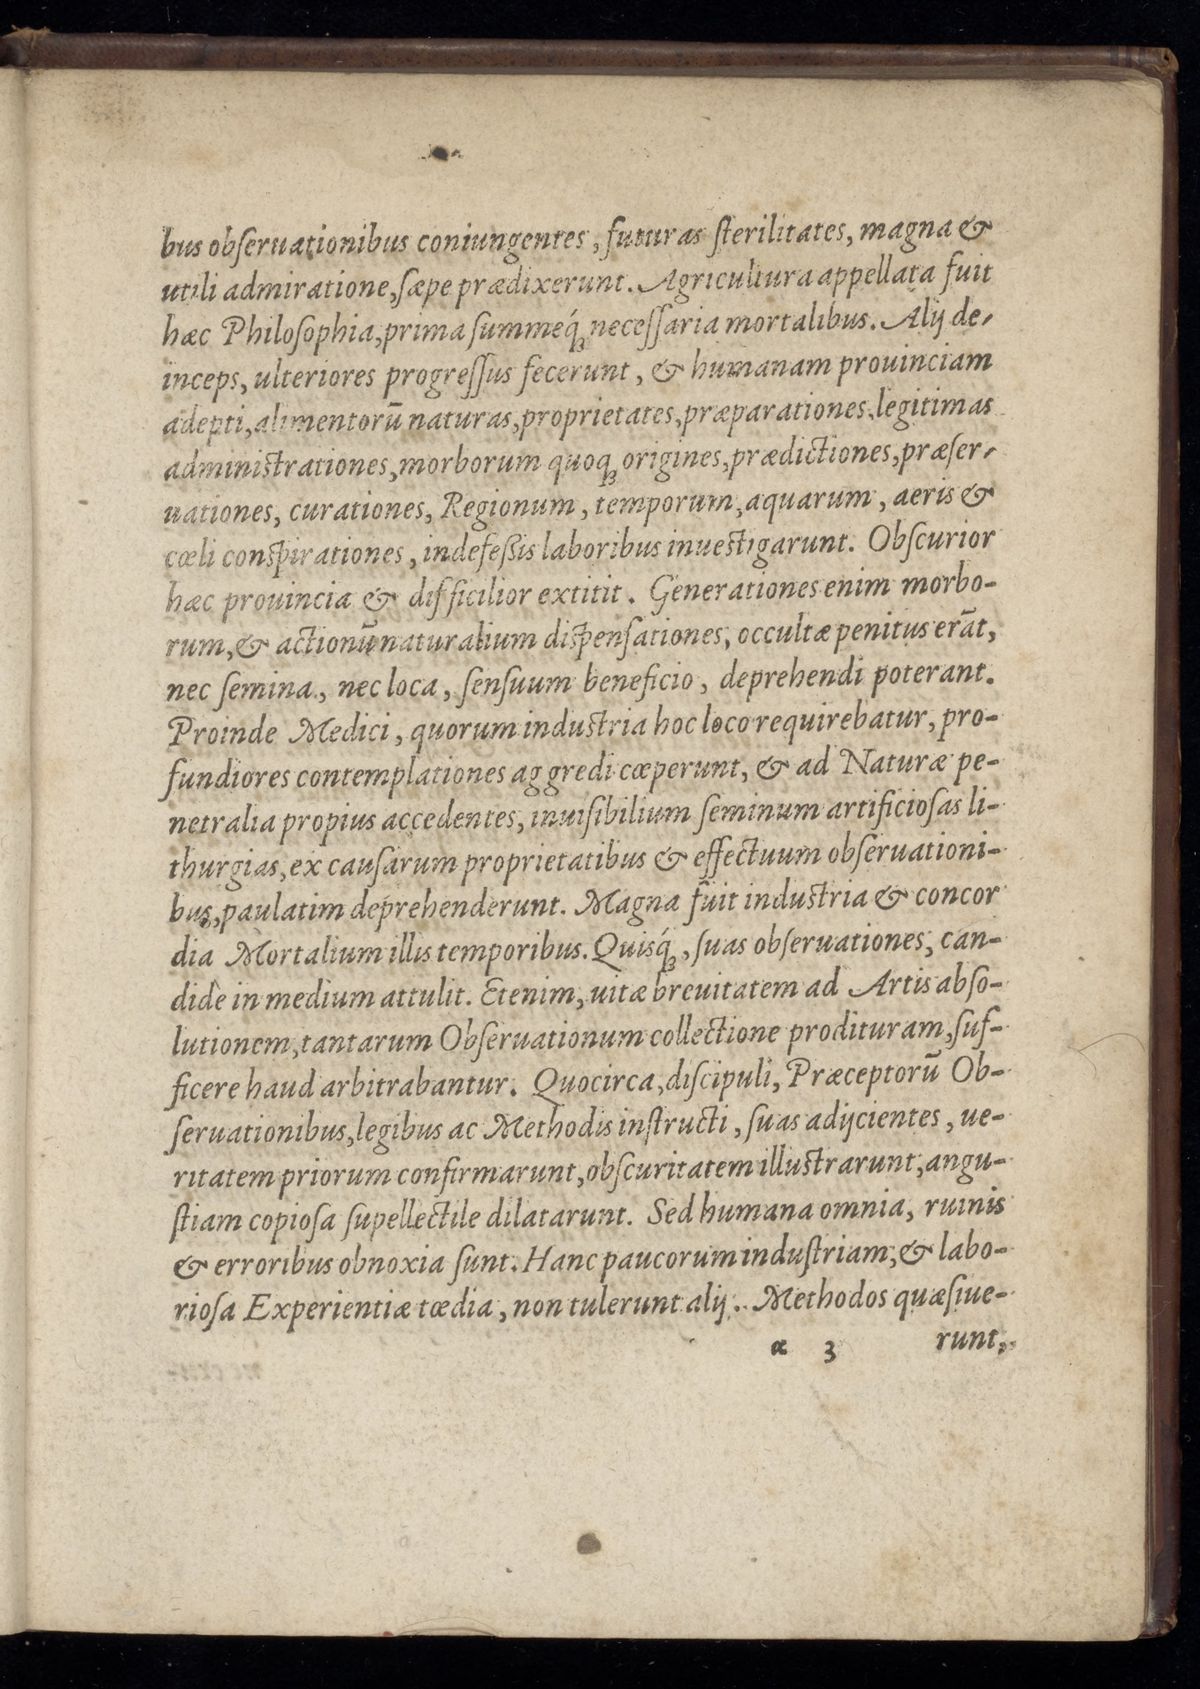 bus obſeruationibus coniungentes, futuras ſterilitates, magna &
utili admiratione, ſæpe prædixerunt. Agricultura appellata fuit
hæc Philoſophia, prima ſummeq́ꝫ neceſſaria mortalibus. Alij de-
inceps, ulteriores progreſſus fecerunt, & humanam prouinciam
adepti, alimentorū naturas, proprietates, præparationes, legitimas
adminiſtrationes, morborum quoqꝫ origines, prædictiones, præſer-
uationes, curationes, Regionum, temporum, aquarum, aeris &
cœli conſpirationes, indefeßis laboribus inueſtigarunt. Obſcurior
hæc prouincia & difficilior extitit. Generationes enim morbo-
rum, & actionū naturalium diſpenſationes, occultæ penitus erāt,
nec ſemina, nec loca, ſenſuum beneficio, deprehendi poterant.
Proinde Medici, quorum induſtria hoc loco requirebatur, pro-
fundiores contemplationes aggredi cœperunt, & ad Naturæ pe-
netralia propius accedentes, inuiſibilium ſeminum artificioſas li-
thurgias, ex cauſarum proprietatibus & effectuum obſeruationi-
bus, paulatim deprehenderunt. Magna fuit induſtria & concor
dia Mortalium illis temporibus. Quisq́ꝫ, ſuas obſeruationes, can-
dide in medium attulit. Etenim, uitæ breuitatem ad Artis abſo-
lutionem, tantarum Obſeruationum collectione prodituram, ſuf-
ficere haud arbitrabantur. Quocirca, diſcipuli, Præceptorū Ob-
ſeruationibus, legibus ac Methodis inſtructi, ſuas adijcientes, ue-
ritatem priorum confirmarunt, obſcuritatem illuſtrarunt, angu-
ſtiam copioſa ſupellectile dilatarunt. Sed humana omnia, ruinis
& erroribus obnoxia ſunt. Hanc paucorum induſtriam, & labo-
rioſa Experientiæ tœdia, non tulerunt alij. Methodos quæſiue-
α 3 runt,